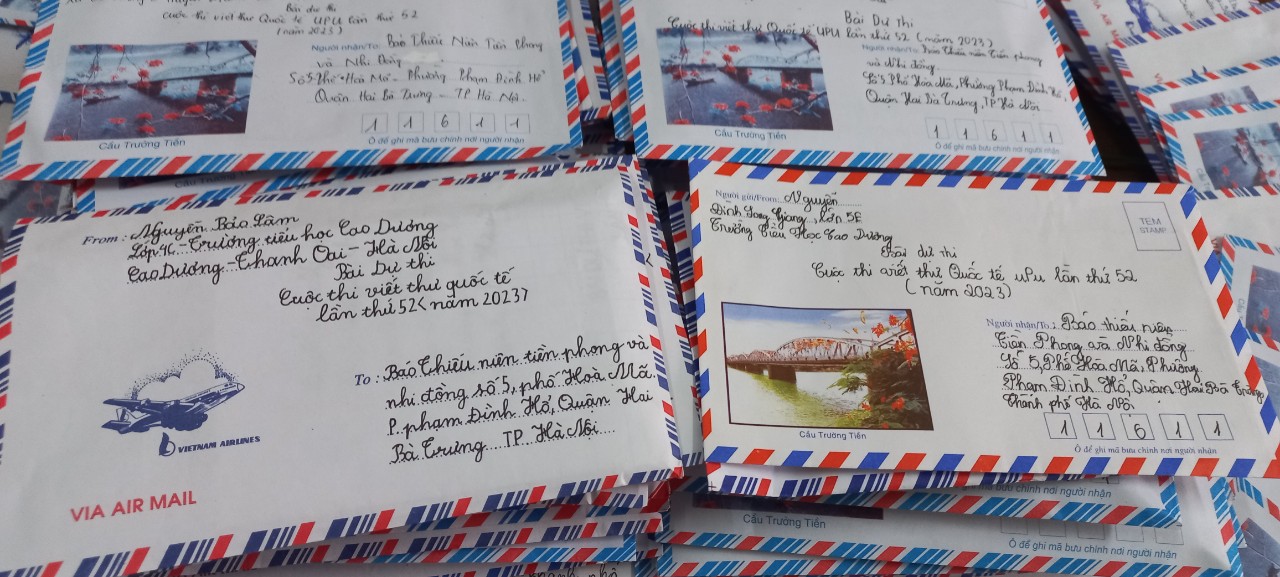 Bài dự thi
Cuộc thi viết thư Quốc tế UPU lần thứ 52
(năm 2023)
Người nhận/To: Báo Thiếu Niên Tiền Phong
và Nhi Đồng
Số 5 Phố Hoà Mã - Phường Phạm Đình Hổ
Quận Hai Bà Trưng - TP Hà Nội.
1 1 6 1 1
Cầu Trường Tiền
Ô để ghi mã bưu chính nơi người nhận
Bài Dự thi
Cuộc thi viết thư Quốc tế UPU lần thứ 52 (năm 2023)
Người nhận/To: Báo Thiếu niên Tiền phong
và Nhi đồng
Số 5 Phố Hòa Mã, Phường Phạm Đình Hổ,
Quận Hai Bà Trưng, TP Hà Nội
1 1 6 1 1
Cầu Trường Tiền
Ô để ghi mã bưu chính nơi người nhận
From: Nguyễn Bảo Lâm
Lớp 4C - Trường tiểu học Cao Dương
Cao Dương - Thanh Oai - Hà Nội
Bài Dự thi
Cuộc thi viết thư quốc tế
lần thứ 52 (năm 2023)
To: Báo Thiếu niên tiền phong và
nhi đồng số 5, phố Hoà Mã.
P. phạm Đình Hổ, Quận Hai
Bà Trưng TP Hà Nội
VIETNAM AIRLINES
VIA AIR MAIL
Người gửi/From: Nguyễn
Đình Long Giang, lớn 5E
Trường Tiểu Học Cao Dương
TEM
STAMP
Bài dự thi
Cuộc thi viết thư Quốc tế UPU lần thứ 52
(năm 2023)
Người nhận/To: Báo thiếu niên
Tiền Phong và Nhi đồng
Số 5, Phố Hòa Mã, Phường
Phạm Đình Hổ, Quận Hai Bà Trưng
Thành phố Hà Nội
1 1 6 1 1
Cầu Trường Tiền
Ô để ghi mã bưu chính nơi người nhận
bưu chính nơi người nhận
Cầu Trường Tiền
Ô để ghi mã bưu chính nơi người nhận